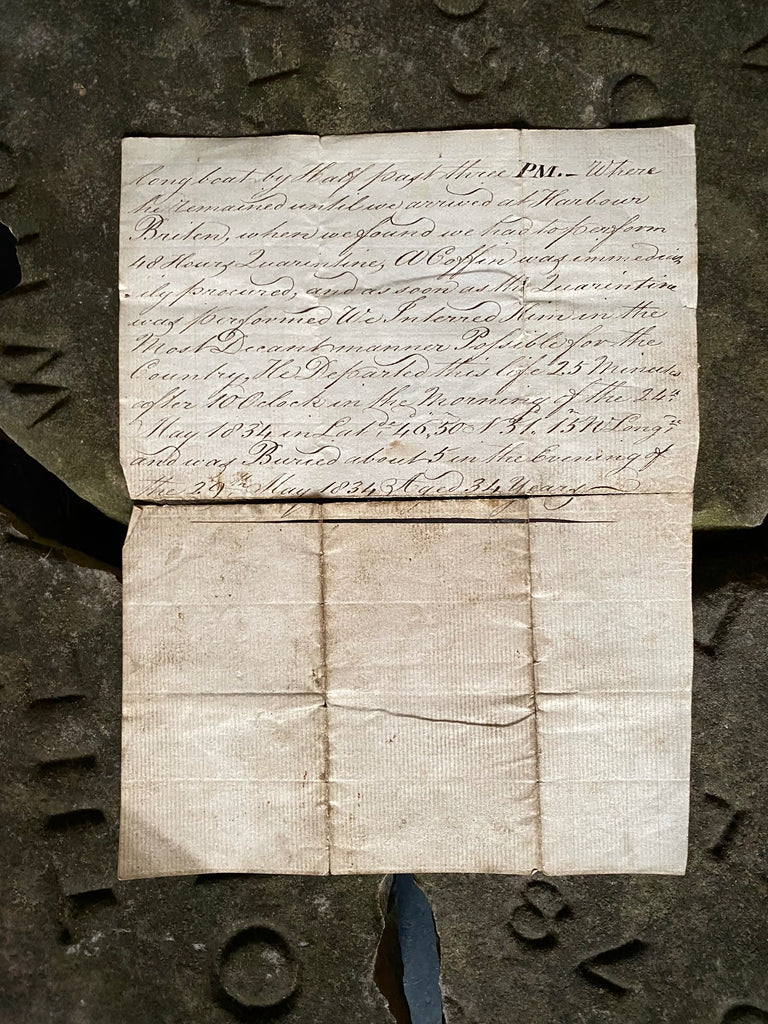 long boat by Half past three PM.- Where
he remained until we arrived at Harbour
Briton, when we found we had to perform
48 Hours Quarintine, A Coffin was immedia
tly procured, and as soon as the Quarintine
was performed We Interred Him in the
Most Decent manner Possible for the
Country, He Departed this life 25 Minutes
after 10 Oclock in the Morning of the 24th
May 1834 in Latde 46,,50 N 51,,15 W Longde
and was Buried about 5 in the Evening of
the 29th May 1834 Aged 34 Years